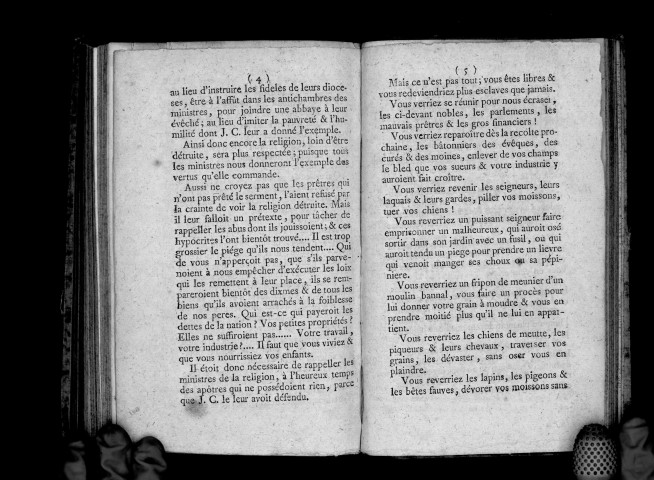 ( 4 )
au lieu d'instruire les fideles de leurs dioce-
ses, être à l'affût dans les antichambres des
ministres, pour joindre une abbaye à leur
évêché; au lieu d'imiter la pauvreté & l'hu-
milité dont J. C. leur a donné l'exemple.
Ainsi donc encore la religion, loin d'être
détruite, sera plus respectée; puisque tous
les ministres nous donneront l'exemple des
vertus qu'elle commande.
Aussi ne croyez pas que les prêtres qui
n'ont pas prêté le serment, l'aient refusé par
la crainte de voir la religion détruite. Mais
il leur falloit un prétexte, pour tâcher de
rappeller les abus dont ils jouissoient; & ces
hypocrites l'ont bientôt trouvé.... Il est trop
grossier le piége qu'ils nous tendent.... Qui
de vous n'apperçoit pas, que s'ils parve-
noient à nous empêcher d'exécuter les loix
qui les remettent à leur place, ils se rem-
pareroient bientôt des dixmes & de tous les
biens qu'ils avoient arrachés à la foiblesse
de nos peres. Qui est-ce qui payeroit les
dettes de la nation? Vos petites propriétés?
Elles ne suffiroient pas...... Votre travail,
votre industrie?.... Il faut que vous viviez &
que vous nourrissiez vos enfants.
Il étoit donc nécessaire de rappeller les
ministres de la religion, à l'heureux temps
des apôtres qui ne possédoient rien, parce
que J. C. le leur avoit défendu.
( 5 )
Mais ce n'est pas tout; vous êtes libres &
vous redeviendriez plus esclaves que jamais.
Vous verriez se réunir pour nous écraser,
les ci-devant nobles, les parlements, les
mauvais prêtres & les gros financiers!
Vous verriez reparoître dès la recolte pro-
chaine, les bâtonniers des évêques, des
curés & des moines, enlever de vos champs
le bled que vos sueurs & votre industrie y
auroient fait croître.
Vous verriez revenir les seigneurs, leurs
laquais & leurs gardes, piller vos moissons,
tuer vos chiens!
Vous reverriez un puissant seigneur faire
emprisonner un malheureux, qui auroit osé
sortir dans son jardin avec un fusil, ou qui
auroit tendu un piege pour prendre un lievre
qui venoit manger ses choux ou sa pépi-
niere.
Vous reverriez un fripon de meunier d'un
moulin bannal, vous faire un procès pour
lui donner votre grain à moudre & vous en
prendre moitié plus qu'il ne lui en appar-
tient.
Vous reverriez les chiens de meutte, les
piqueurs & leurs chevaux, traverser vos
grains, les dévaster, sans oser vous en
plaindre.
Vous reverriez les lapins, les pigeons &
les bêtes fauves, dévorer vos moissons sans